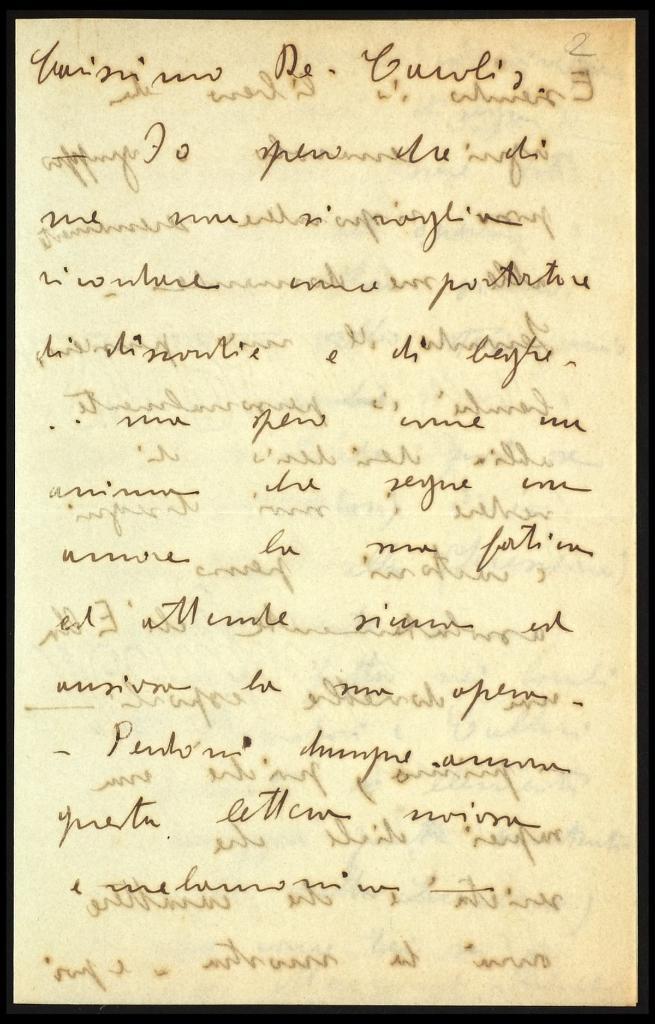 2
Carissimo De-Carolis,
— Io spero che di
me non si voglia
ricordare come portatore
di discordie e di beghe -
.. ma spero come un
anima che segue con
amore la sua fatica
ed attende sicura ed
ansiosa la sua opera -
- Perdoni dunque ancora
questa lettera noiosa
e melanconica —